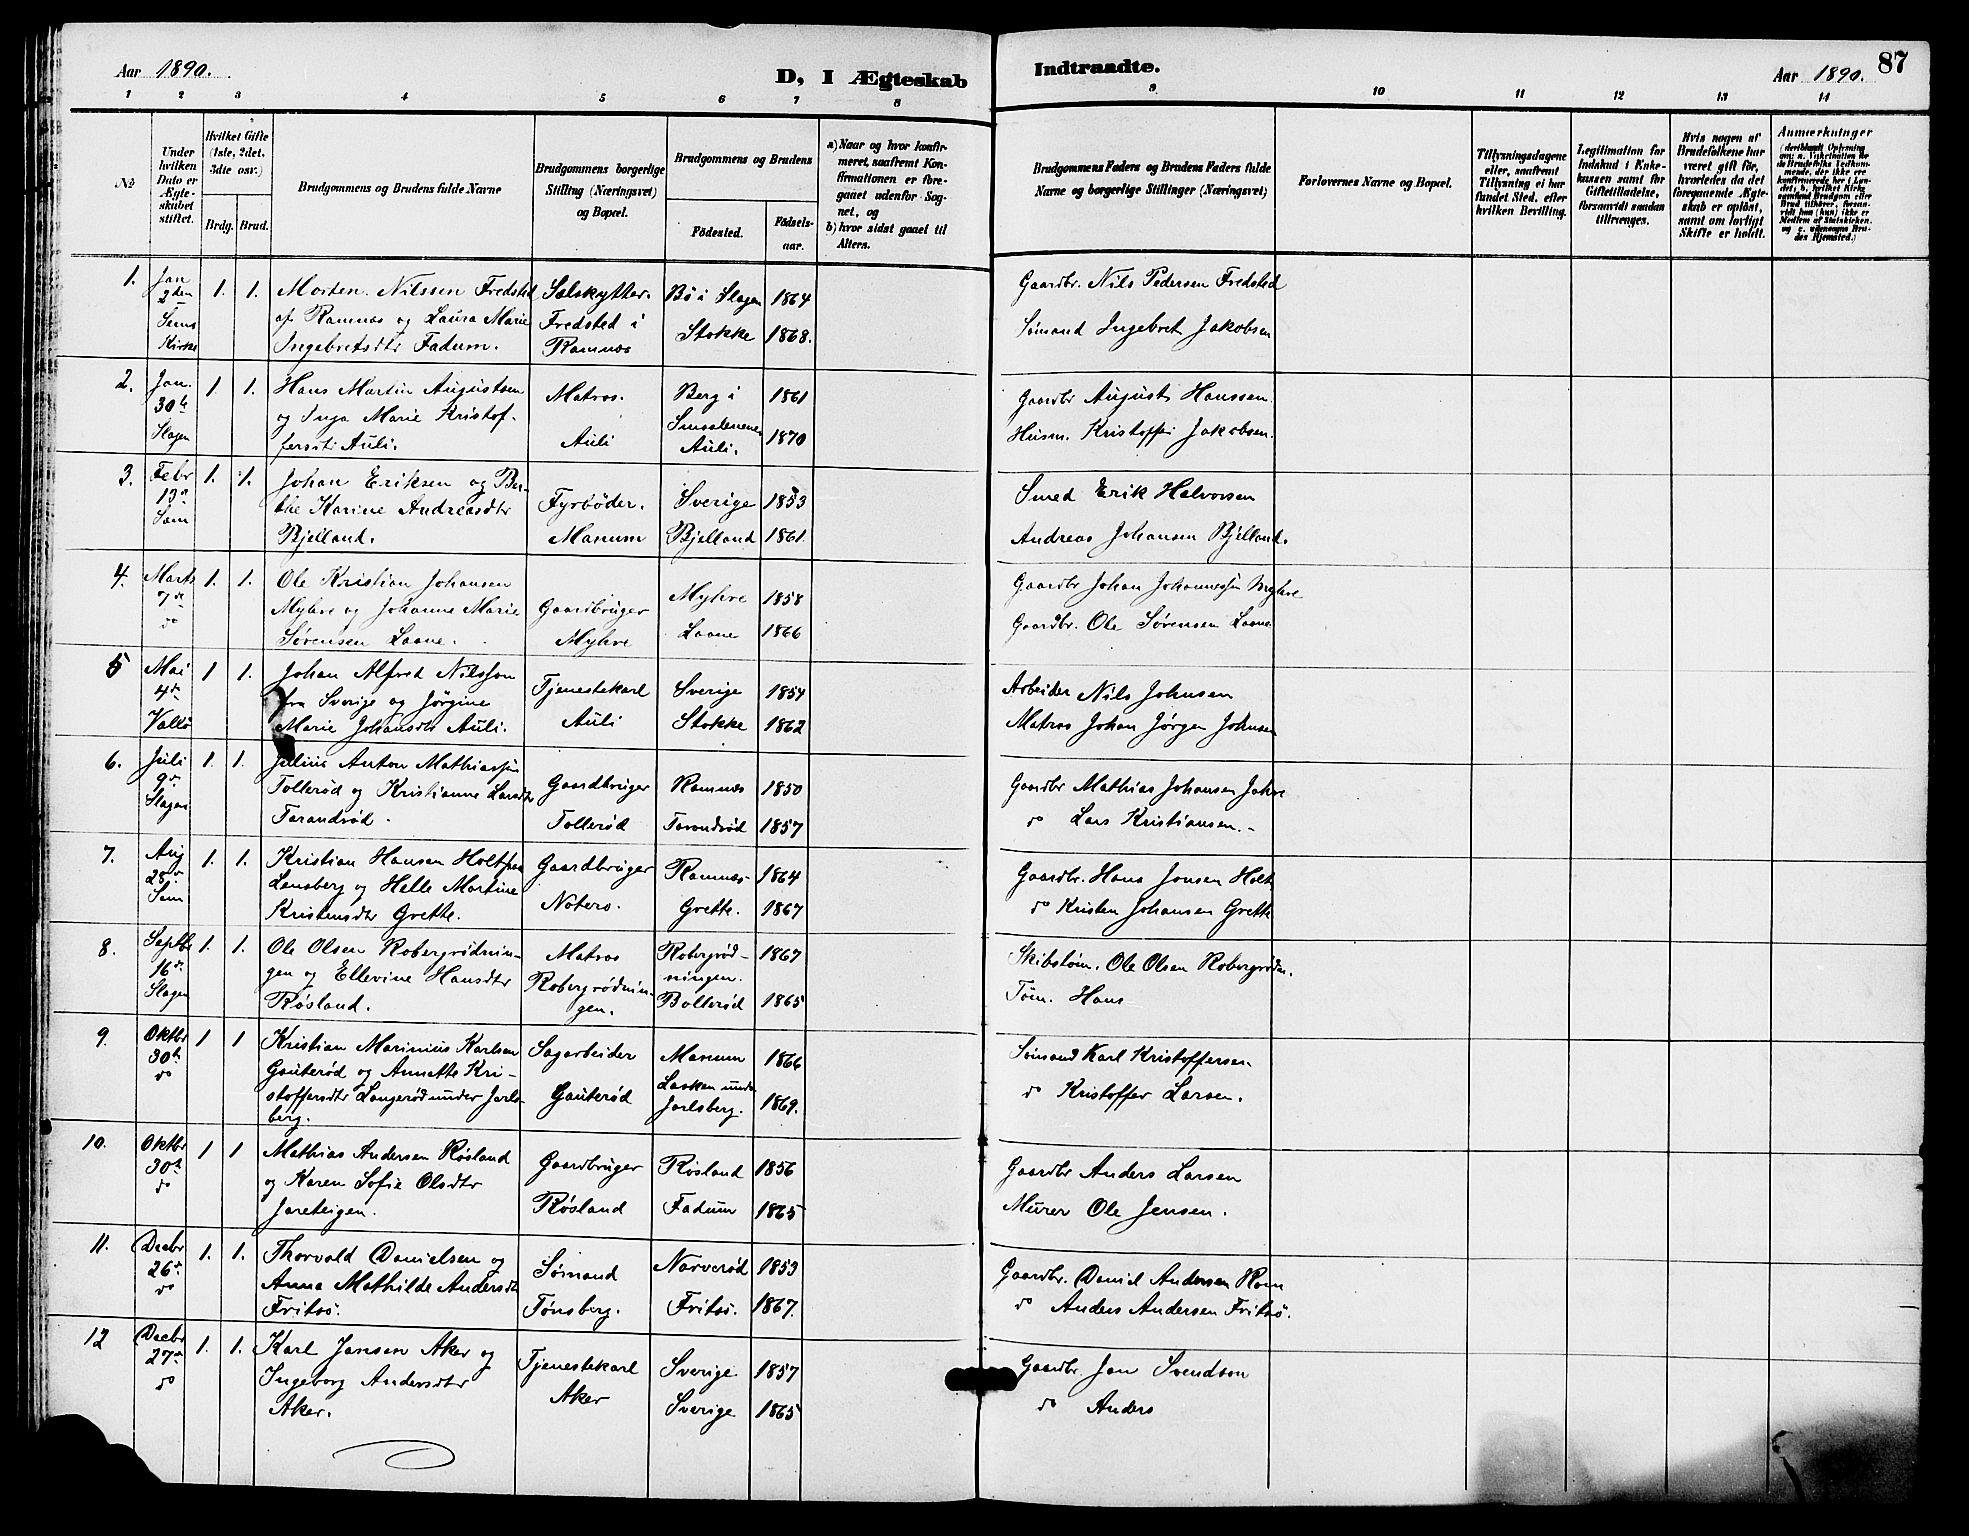 Aar 1890.
D, I Ægteskab Indtraadte.
Aar 1890.
87
1 2 3 4 5 6 7 8 9 10 11 12 13 14
No
Under
hvilken
Dato er
Ægte-
skabet
stiftet.
Hvilket Gifte
(1ste, 2det,
3die osv.)
Brdg. Brud.
Brudgommens og Brudens fulde Navne
Brudgommens borgerlige
Stilling (Næringsvei)
og Bopæl.
Brudgommens og Brudens
Födested.
Födsels-
aar.
a) Naar og hvor konfir-
meret, saafremt Kon-
firmationen er fore-
gaaet udenfor Sog-
net, og
b) hvor sidst gaaet til
Alters.
Brudgommens Faders og Brudens Faders fulde
Navne og borgerlige Stillinger (Næringsvei)
Forlovernes Navne og Bopæl.
Tillysningsdagene
eller, saafremt
Tillysning ei har
fundet Sted, efter
hvilken Bevilling.
Legitimation for
Indskud i Enke-
kassen samt for
Giftetilladelse,
forsaavidt saadan
tiltrænges.
Hvis nogen af
Brudefolkene har
været gift för,
hvorledes da det
foregaaende Ægte-
skab er oplöst,
samt om lovligt
Skifte er holdt.
Anmærkninger
(deriblandt Oplysning
om: a. Vakcination for
de Brudefolks Vedkom-
mende, der ikke ere
konfirmerede her i Lan-
det, b. hvilket Kirke-
samfund Brudgom eller
Brud tilhörer, forsaa-
vidt han (hun) ikke er
Medlem af Statskirken,
og c. udensogns Bru-
des Hjemsted.)
1. Jan 2den Sems Kirke 1. 1.
Morten Nilssen Fredsted
af Ramnæs og Laura Marie
Ingebretsdtr Fadum.
Selskytter.
Fredsted i
Ramnæs
Bø i Slagen 1864
Stokke 1868.
Gaardbr. Nils Pedersen Fredsted
Sømand Ingebret Jakobsen
2. Jan. 30te Slagen 1 1.
Hans Martin Augustsen
og Inga Marie Kristof-
fersdtr Auli.
Matros.
Auli
Berg i 1861
Smaalenene
Auli. 1870
Gaardbr August Hanssen
Husm. Kristoffer Jakobsen.
3. Febr 13de Sem 1. 1.
Johan Eriksen og Ber-
the Karine Andreasdtr
Bjelland.
Fyrbøder.
Manum
Sverige 1853
Bjelland 1861
Smed Erik Halvorsen
Andreas Johansen Bjelland.
4. Marts 7de do 1. 1.
Ole Kristian Johansen
Myhre og Johanne Marie
Sørensen Laane.
Gaardbruger
Myhre
Myhre 1858
Laane 1866
Gaardbr Johan Johannessen Myhre
Gaardbr. Ole Sørensen Laane
5 Mai 4de Vallø 1 1.
Johan Alfred Nilsson
fra Sverige og Jørgine
Marie Johansdtr Auli.
Tjenestekarl
Auli
Sverige 1854
Stokke 1862
Arbeider Nils Johnsen
Matros Johan Jørgen Johnsen
6. Juli 9de Slagen 1. 1.
Julius Anton Mathiassen
Tollerød og Kristianne Larsdtr
Tarandrød.
Gaardbruger
Tollerød
Ramnæs 1850
Tarandrød 1857
Gaardbr Mathias Johansen Jahre
do Lars Kristiansen.
7. Aug 28de Sem 1. 1.
Kristian Hansen Holt paa
Lensberg og Helle Martine
Kristensdtr Grette.
Gaardbruger
Notero.
Ramnæs 1864
Grette. 1867
Gaardbr. Hans Jonsen Holt
do Kristen Johansen Grette
8. Septbr 16de Slagen 1. 1.
Ole Olsen Robergrødnin-
gen og Ellevine Hansdtr
Røsland.
Matros
Robergrødnin-
gen.
Robergrød- 1867
ningen.
Bollerød 1865
Skibstøm. Ole Olsen Robergrødn.
Tøm. Hans
9. Oktbr 30te do 1 1
Kristian Marinius Karlsen
Gauterød og Annette Kri-
stoffersdtr Langerød under Jarls-
berg.
Sagarbeider
Gauterød
Manum 1866
Lasken under
Jarlsberg. 1869.
Sømand Karl Kristoffersen
do Kristoffer Larsen.
10. Oktbr 30te do 1 1
Mathias Andersen Røsland
og Karen Sofie Olsdtr
Jareteigen.
Gaardbruger
Røsland
Røsland 1856
Fadum 1865
Gaardbr Anders Larsen
Murer Ole Jensen.
11. Decbr 26de do 1. 1.
Thorvald Danielsen og
Anna Mathilde Andersdtr
Fritsø.
Sømand
Tønsberg.
Narverød 1853
Fritsø. 1867.
Gaardbr. Daniel Andersen Rom
do Anders Andersen Fritsø.
12 Decbr 27de do 1. 1.
Karl Jansen Aker og
Ingeborg Andersdtr
Aker.
Tjenestekarl
Aker
Sverige 1857
Sverige 1865
Gaardbr Jan Svendsen
do Anders